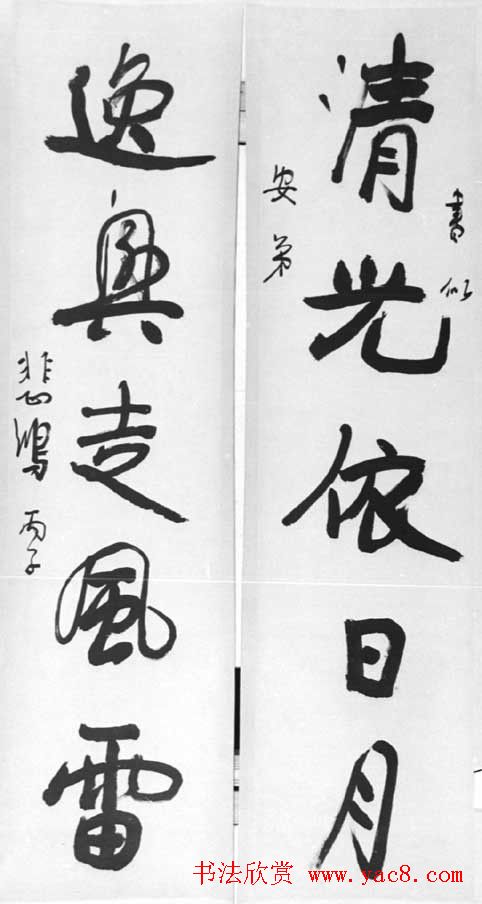 清光依日月
書似
安弟
逸興走風雷
悲鴻丙子
书法欣赏 www.yac8.com